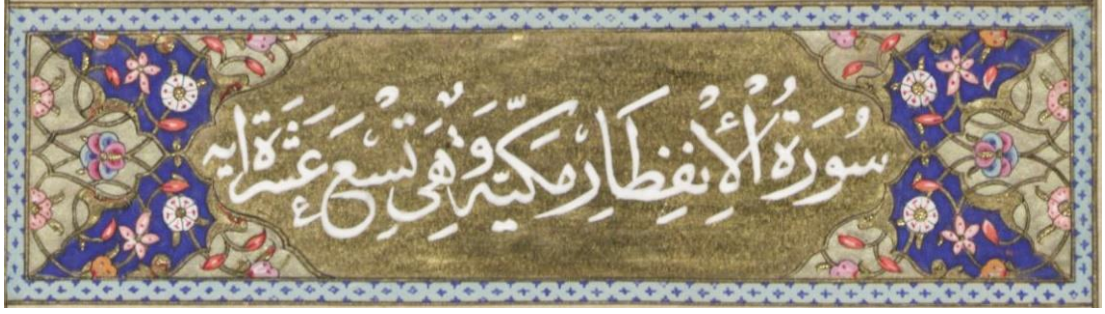 سُورَةُ الْأِنفِطَارِ مَكّيّة وَهِیَ تِسْعَ عَشْرَةَ ایه